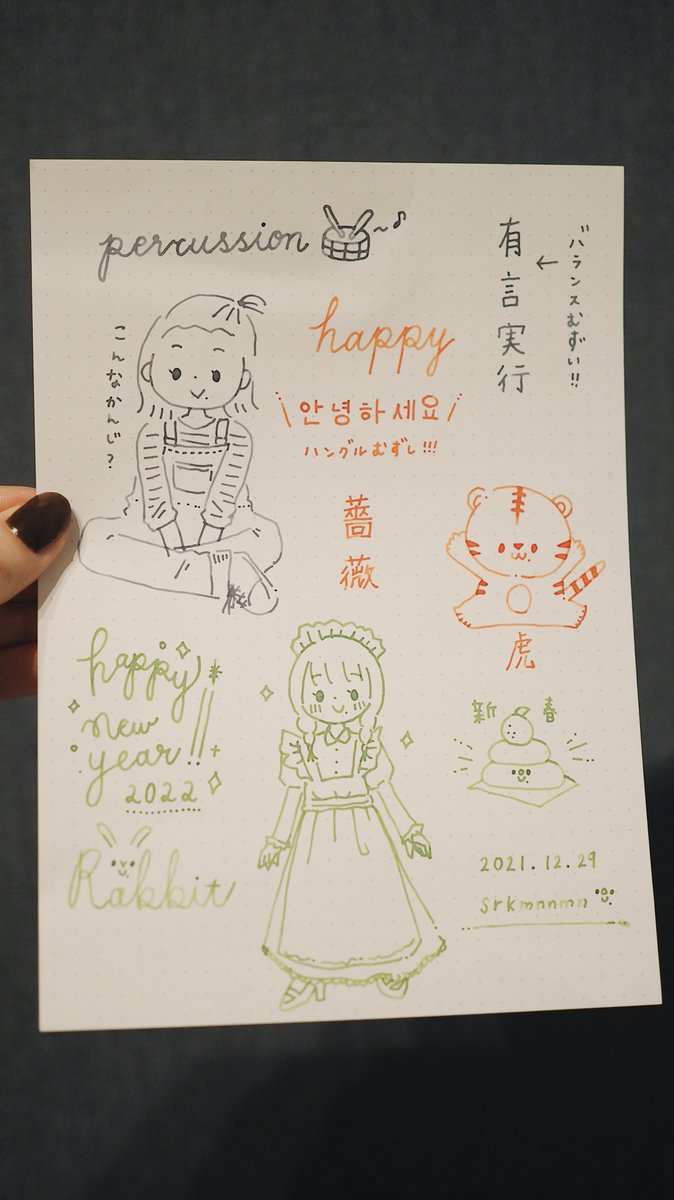 percussion
有言実行
バランスむずい!!
こんなかんじ?
happy
안녕하세요
ハングルむずし!!!
薔薇
虎
happy
new
year!!
2022
新春
Rabbit
2021.12.29
srkmnnmn